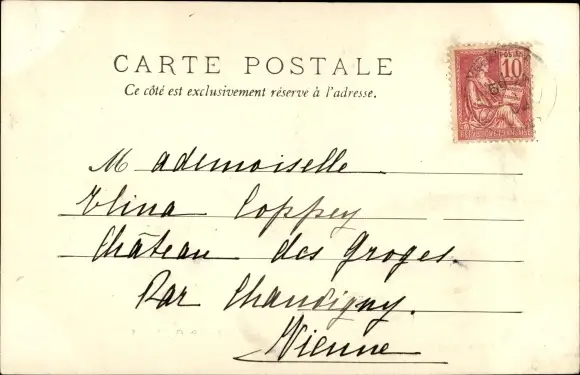 CARTE POSTALE
Ce côté est exclusivement réservé à l'adresse.
10
REPUBLIQUE FRANÇAISE
Mademoiselle
Elina Coppey
Château des Groges.
Par Chauvigny.
Vienne